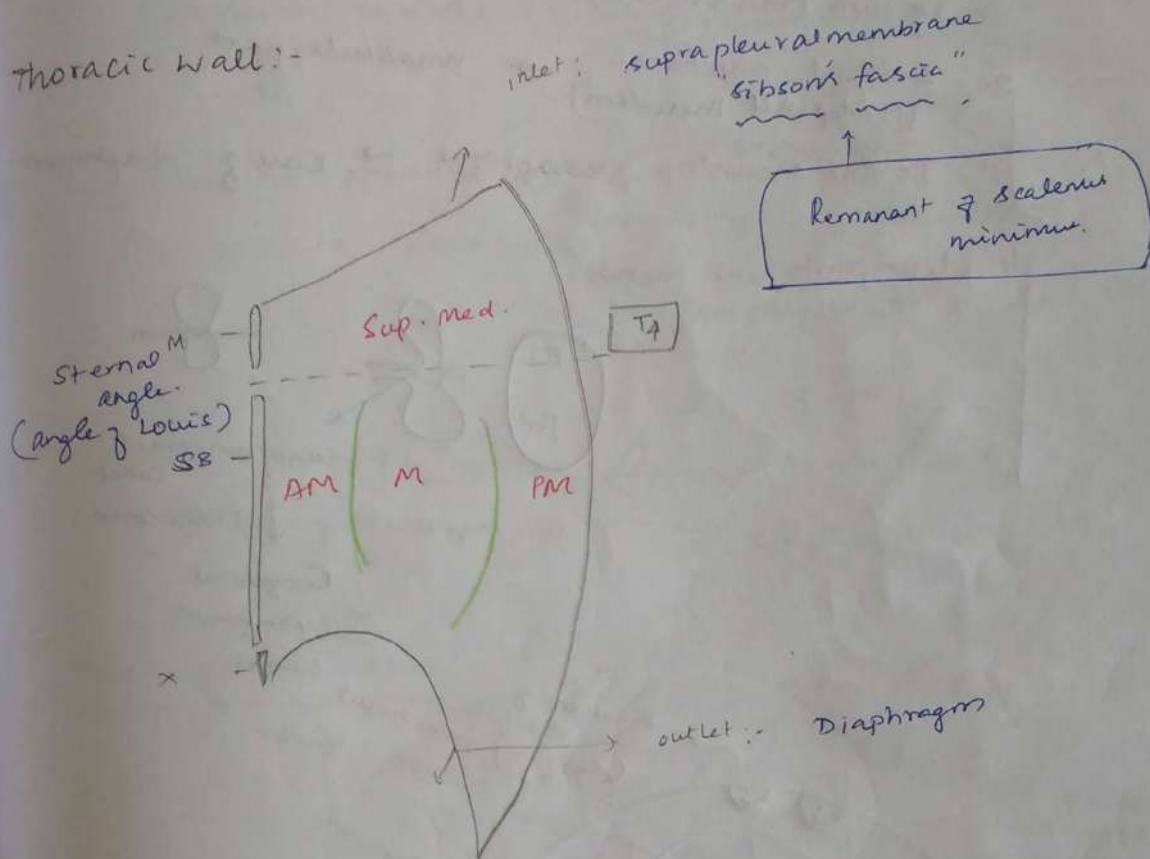 Thoracic wall:-
inlet: suprapleural membrane
"sibson's fascia"
Remanant of scalenus
minimus.
Sup. med.
T4
M
Sternal
angle.
(angle of Louis)
SB
AM
M
PM
x
outlet:- Diaphragm